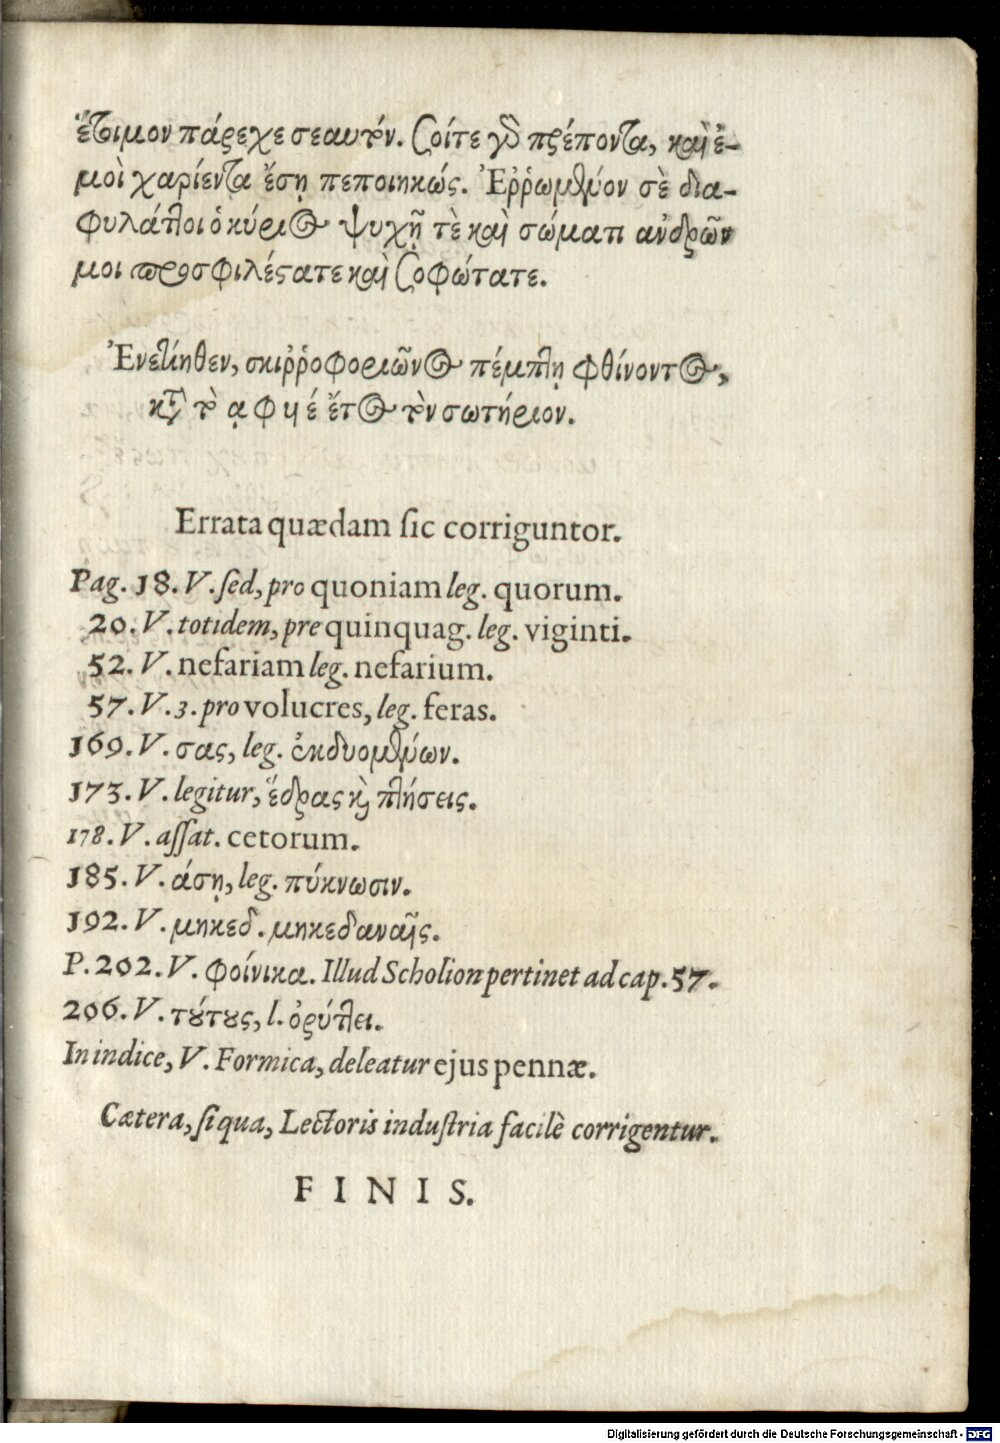 ἕτοιμον πάρεχε σεαυτόν. σοί τε γὸ πρέποντα, καὶ ἐ-
μοὶ χαρίεντα ἔσῃ πεποιηκώς. Ἐῤῥωμένον σὲ δια-
φυλάττοι ὁ κύριος ψυχῇ τὲ καὶ σώματι ἀνδρῶν
μοι προσφιλέστατε καὶ σοφώτατε.
Ἐνετίηθεν, σκιῤῥοφοριῶνος πέμπτῃ φθίνοντος,
κτ τὸ αφϥέ ἔτος τὸν σωτήριον.
Errata quædam sic corriguntor.
Pag. 18. V. sed, pro quoniam leg. quorum.
20. V. totidem, pre quinquag. leg. viginti.
52. V. nefariam leg. nefarium.
57. V. 3. pro volucres, leg. feras.
169. V. σας, leg. ἐκδυομένων.
173. V. legitur, ἕδρας κ πλήσεις.
178. V. assat. cetorum.
185. V. άσῃ, leg. πύκνωσιν.
192. V. μηκεδ. μηκεδαναῖς.
P. 202. V. φοίνικα. Illud Scholion pertinet ad cap. 57.
206. V. τούτους, l. ὀρύττει.
In indice, V. Formica, deleatur ejus pennæ.
Cætera, si qua, Lectoris industria facilè corrigentur.
FINIS.
Digitalisierung gefördert durch die Deutsche Forschungsgemeinschaft - DFG